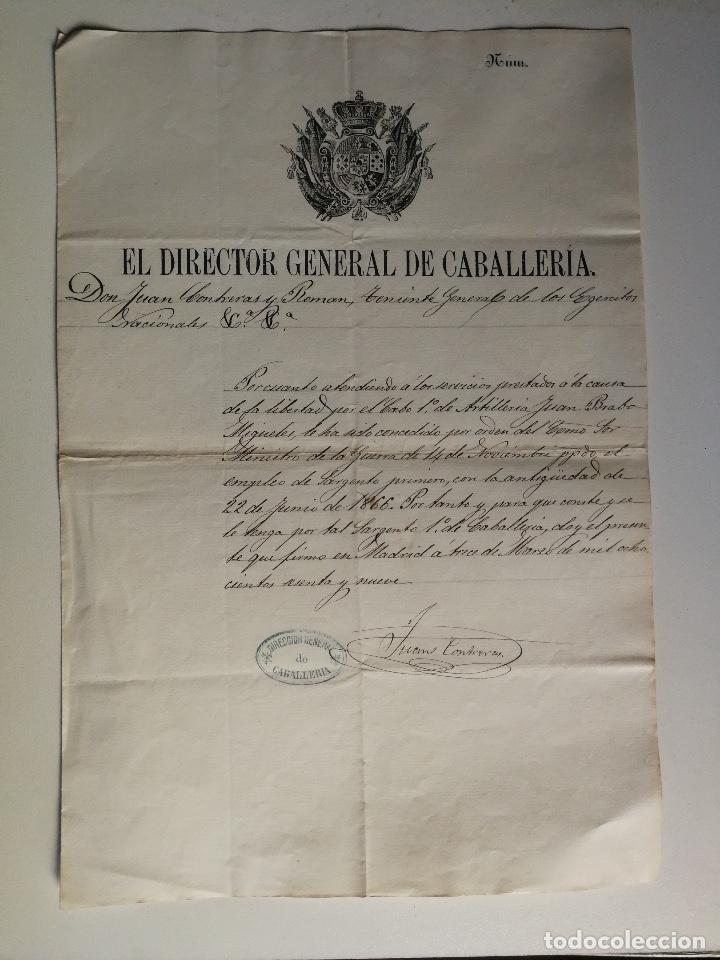 Núm.
EL DIRECTOR GENERAL DE CABALLERÍA.
Don Juan Contreras y Roman, Teniente General de los Egercitos
Nacionales &.ª &.ª
Por cuanto atendiendo á los servicios prestados á la causa
de la libertad por el Cabo 1.º de Artilleria Juan Brabo
Migueles, le ha sido concedido por orden del Exmo Sor
Ministro de la Guerra de 14 de Noviembre ppdo, el
empleo de Sargento primero, con la antigüedad de
22 de Junio de 1866. Por tanto y para que conste y se
le tenga por tal Sargento 1.º de Caballeria, doy el presen
te que firmo en Madrid á trece de Marzo de mil ocho
cientos sesenta y nueve
Juan Contreras
DIRECCION GENERAL
de
CABALLERIA
todocoleccion
todocoleccion.net